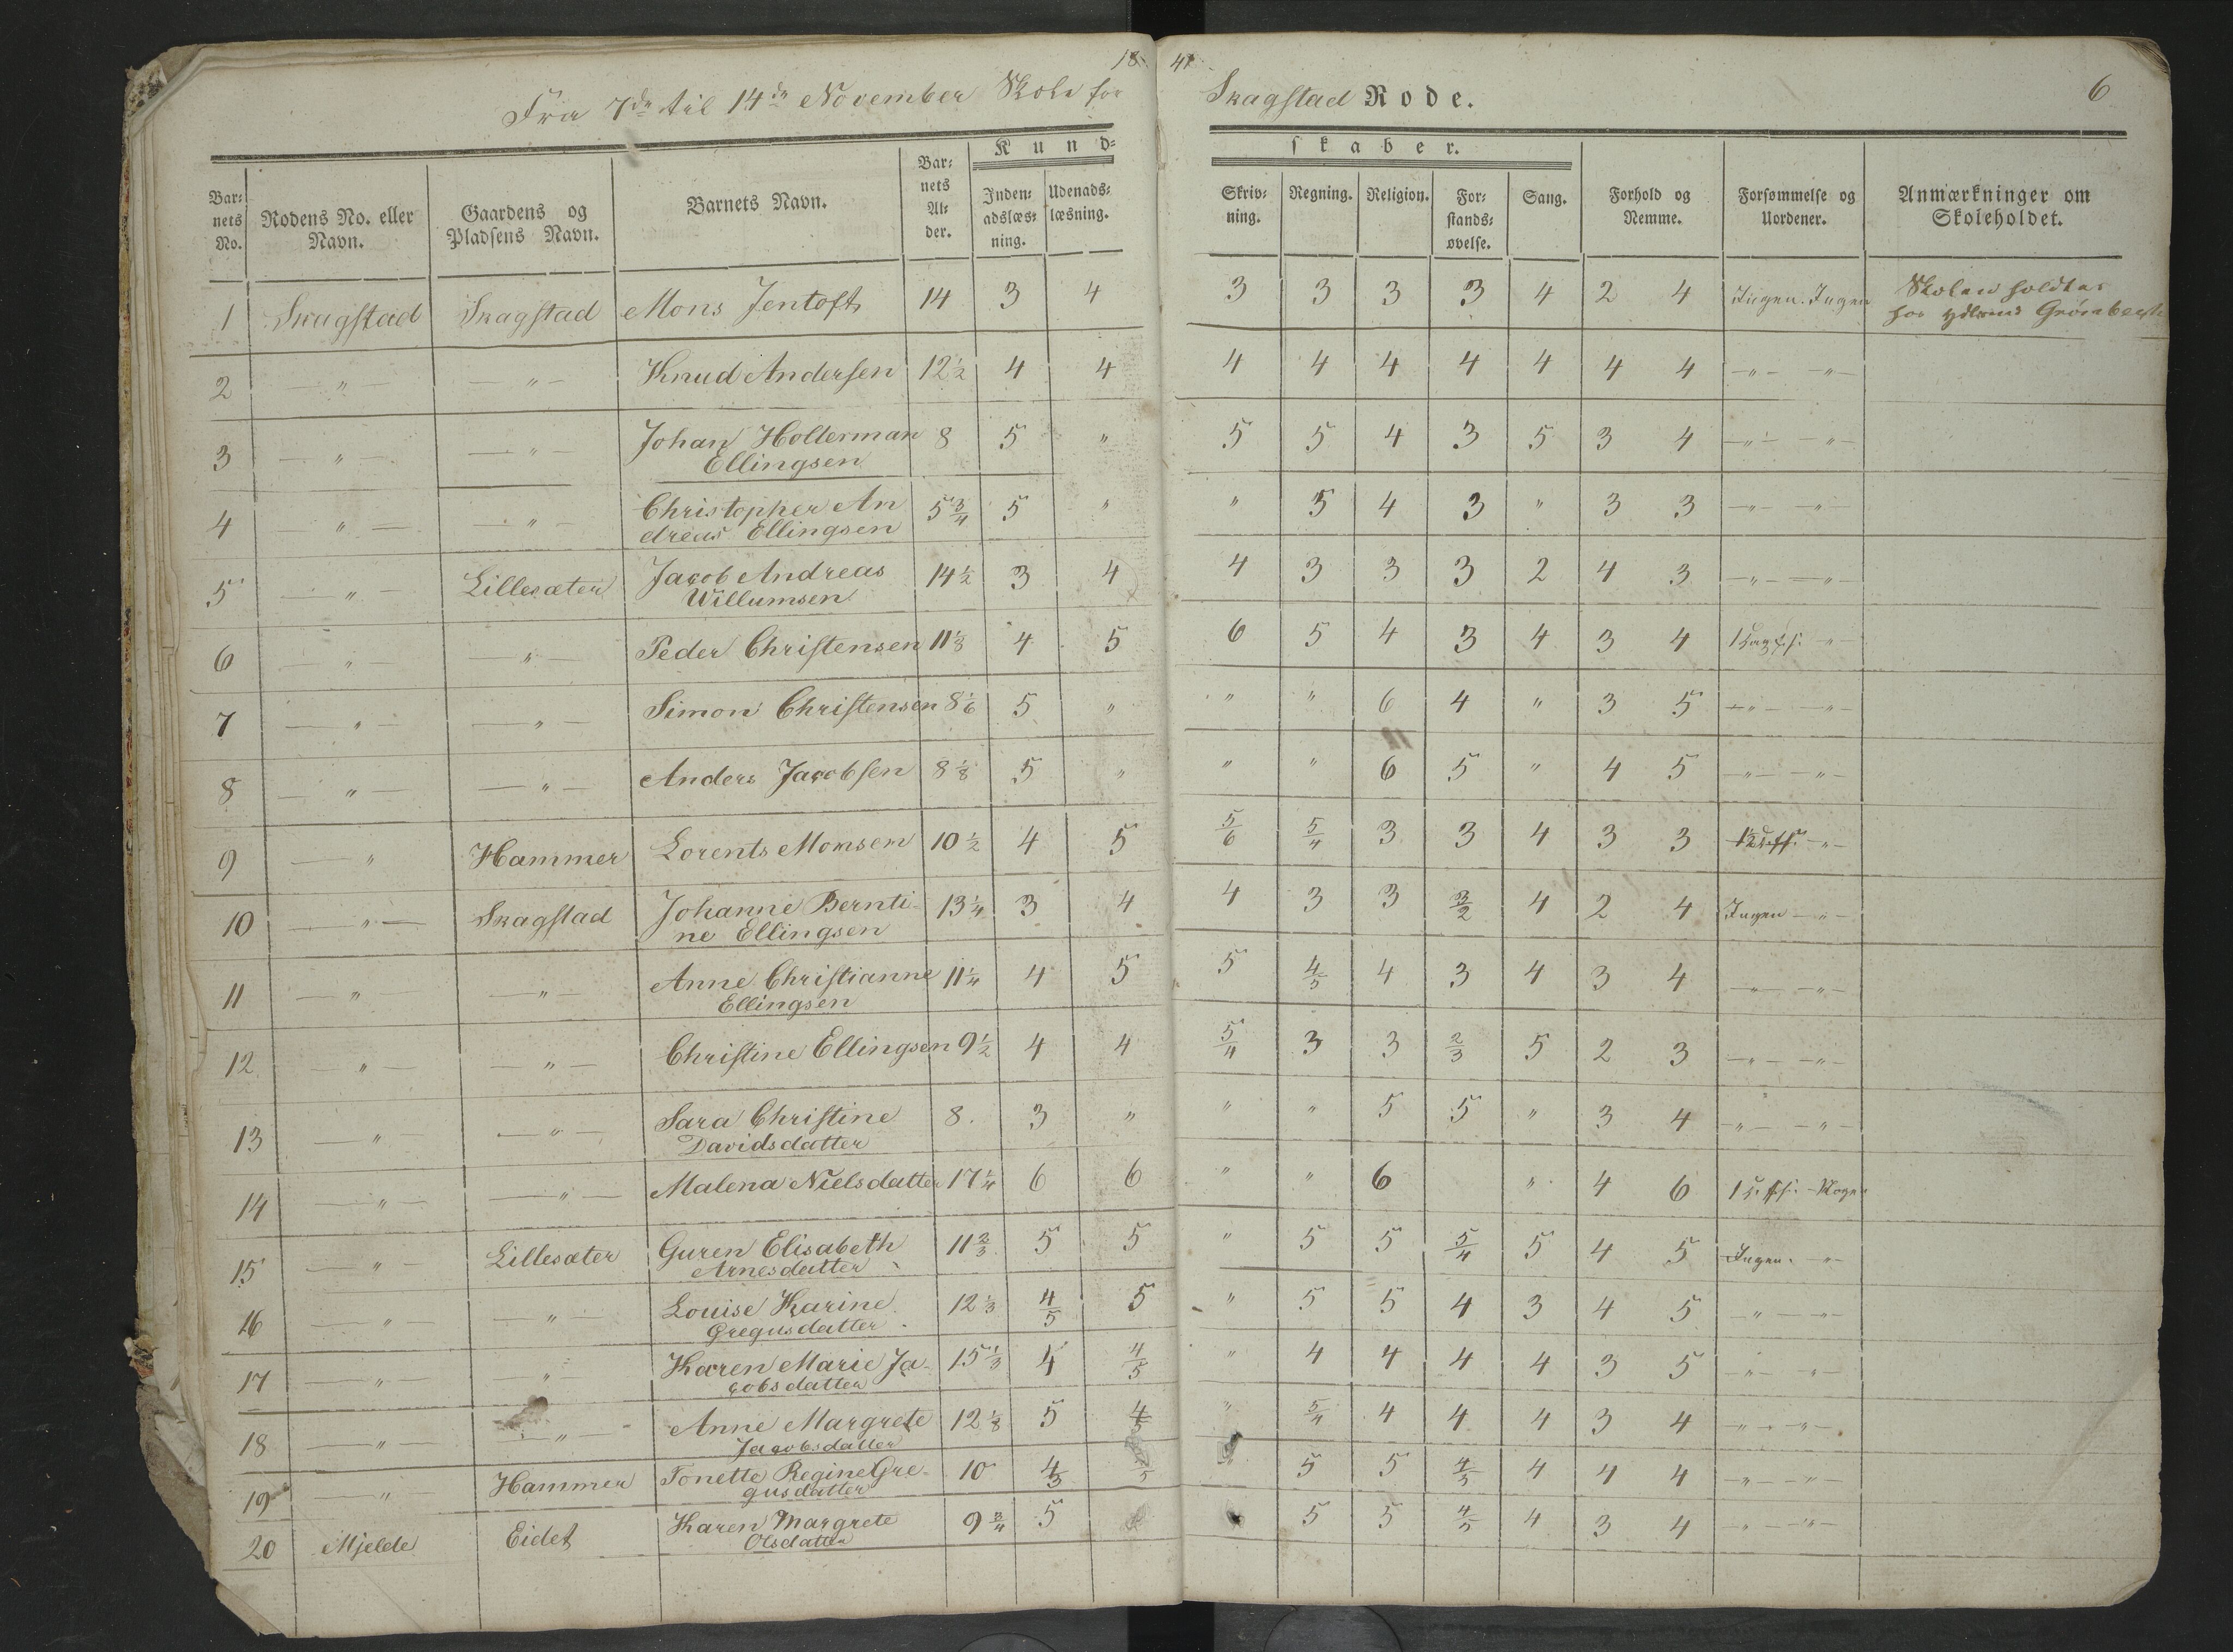 18 41
6
Fra 7de til 14de November Skole for Skagstad Rode.
Kund- skaber.
Bar- nets No. | Rodens No. eller Navn. | Gaardens og Pladsens Navn. | Barnets Navn. | Bar- nets Al- der. | Inden- adslæs- ning. | Udenads- læsning. | Skriv- ning. | Regning. | Religion. | For- stands- øvelse. | Sang. | Forhold og Nemme. | Forsømmelse og Uordener. | Anmærkninger om Skoleholdet.
1 Skagstad Skagstad Mons Jentoft 14 3 4 3 3 3 3 4 2 4 Ingen. Ingen Skolen holdtes hos
2 — " — — " — Knud Andersen 12 1/2 4 4 4 4 4 4 4 4 4 — " — — " —
3 — " — — " — Johan Holterman Ellingsen 8 5 " 5 5 4 3 5 3 4 — " — — " —
4 — " — — " — Christopher An dreas Ellingsen 5 3/4 5 " " 5 4 3 " 3 3 — " — — " —
5 — " — Lillesæter Jacob Andreas Willumsen 14 1/2 3 4 4 3 3 3 2 4 3 — " — — " —
6 — " — — " — Peder Christensen 11 1/3 4 5 6 5 4 3 4 3 4 1 — " —
7 — " — — " — Simon Christensen 8 1/6 5 " " " 6 4 " 3 5 — " — — " —
8 — " — — " — Anders Jacobsen 8 1/8 5 " " " 6 5 " 4 5 — " — — " —
9 — " Hammer Lorents Monsen 10 1/2 4 5 5/6 5/4 3 3 4 3 3 — " —
10 — " — Skagstad Johanne Bernti- ne Ellingsen 13 1/4 3 4 4 3 3 3/2 4 2 4 Ingen — " —
11 — " — — " — Anne Christianne Ellingsen 11 1/4 4 5 5 4/5 4 3 4 3 4 — " — — " —
12 — " — — " — Christine Ellingsen 9 1/2 4 4 5/4 3 3 2/3 5 2 3 — " — — " —
13 — " — — " — Sara Christine Davidsdatter 8. 3 " " " 5 5 " 3 4 — " — — " —
14 — " — — " — Malena Nielsdatter 17 1/4 6 6 " " 6 " 4 6 1
15 — " — Lillesæter Guren Elisabeth Arnesdatter 11 2/3 5 5 " 5 5 5/4 5 4 5 Ingen. — " —
16 — " — — " — Louise Karine Gregusdatter 12 1/3 4/5 5 " 5 5 4 3 4 5 " — " —
17 — " — " — Karen Marie Ja- cobsdatter 15 1/3 4 4/5 " 4 4 4 4 3 5 — " — " —
18 — " — — " — Anne Margrete Jacobsdatter 12 1/8 5 4/5 " 5/4 4 4 4 3 4 — " — " —
19 — " — Hammer Tonette Regine Gre- gusdatter 10 4/3 5 5 5 4/5 4 4 4 — " — " —
20 Mjelde Eidet Karen Margrete Olsdatter 9 3/4 5 5 5 4/5 4 3 4 — " — " —